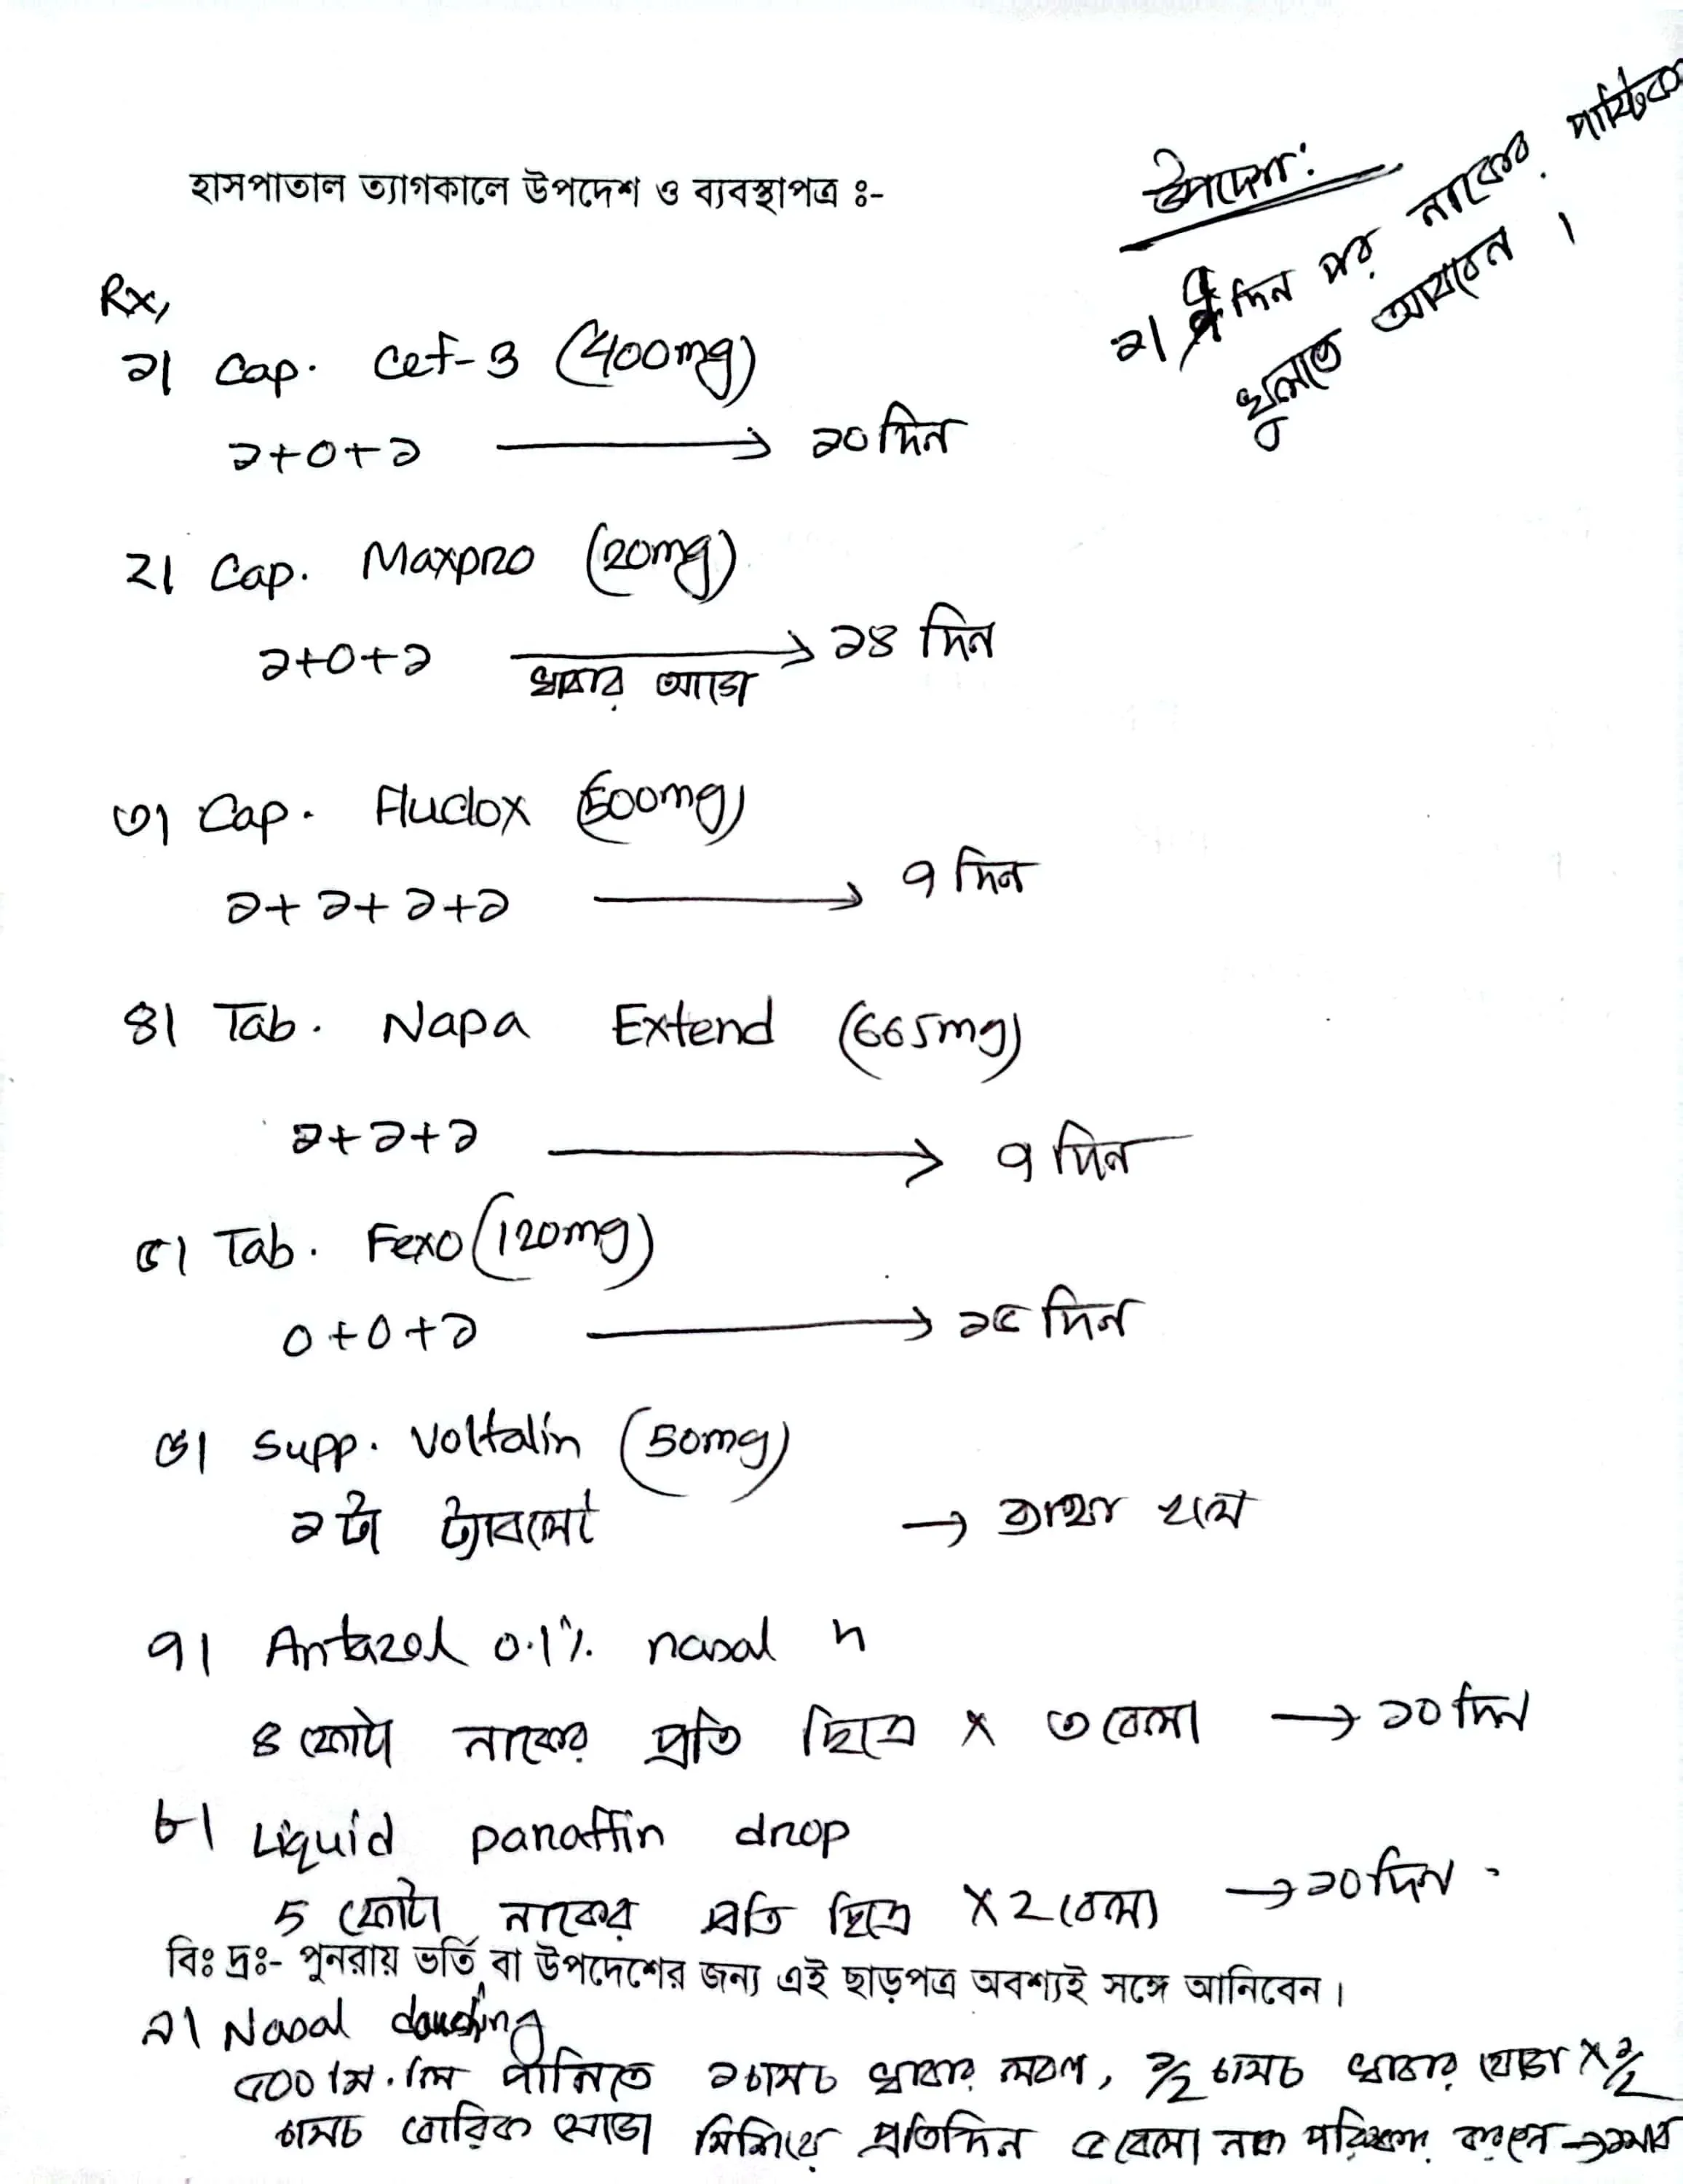 হাসপাতাল ত্যাগকালে উপদেশ ও ব্যবস্থাপত্র ঃ-
উপদেশ:
১। দিন পর নাকের
খুলতে আসবেন ।
Rx,
১। Cap. Cef-3 (400mg)
১+০+১ → ১০ দিন
২। Cap. Maxpro (20mg)
১+০+১ → ১৪ দিন
খাবার আগে
৩। Cap. Fluclox (500mg)
১+১+১+১ → ৭ দিন
৪। Tab. Napa Extend (665mg)
১+১+১ → ৭ দিন
৫। Tab. Fexo (120mg)
০+০+১ → ১৫ দিন
৬। Supp. Voltalin (50mg)
১ টা → ব্যাথা হলে
৭। Antazol 0.1% nasal
৪ ফোটা নাকের প্রতি ছিদ্রে × ৩ বেলা → ১০ দিন
৮। Liquid paraffin drop
5 ফোটা নাকের প্রতি ছিদ্রে × 2 বেলা → ১০ দিন
বিঃ দ্রঃ- পুনরায় ভর্তি বা উপদেশের জন্য এই ছাড়পত্র অবশ্যই সঙ্গে আনিবেন।
৯। Nasal douching
৫০০ মি.লি পানিতে ১ চামচ খাবার লবণ, ১/২ চামচ খাবার সোডা × ১/২
চামচ বোরিক সোডা মিশিয়ে প্রতিদিন ৫ বেলা নাক পরিষ্কার করবেন → ১ মাস